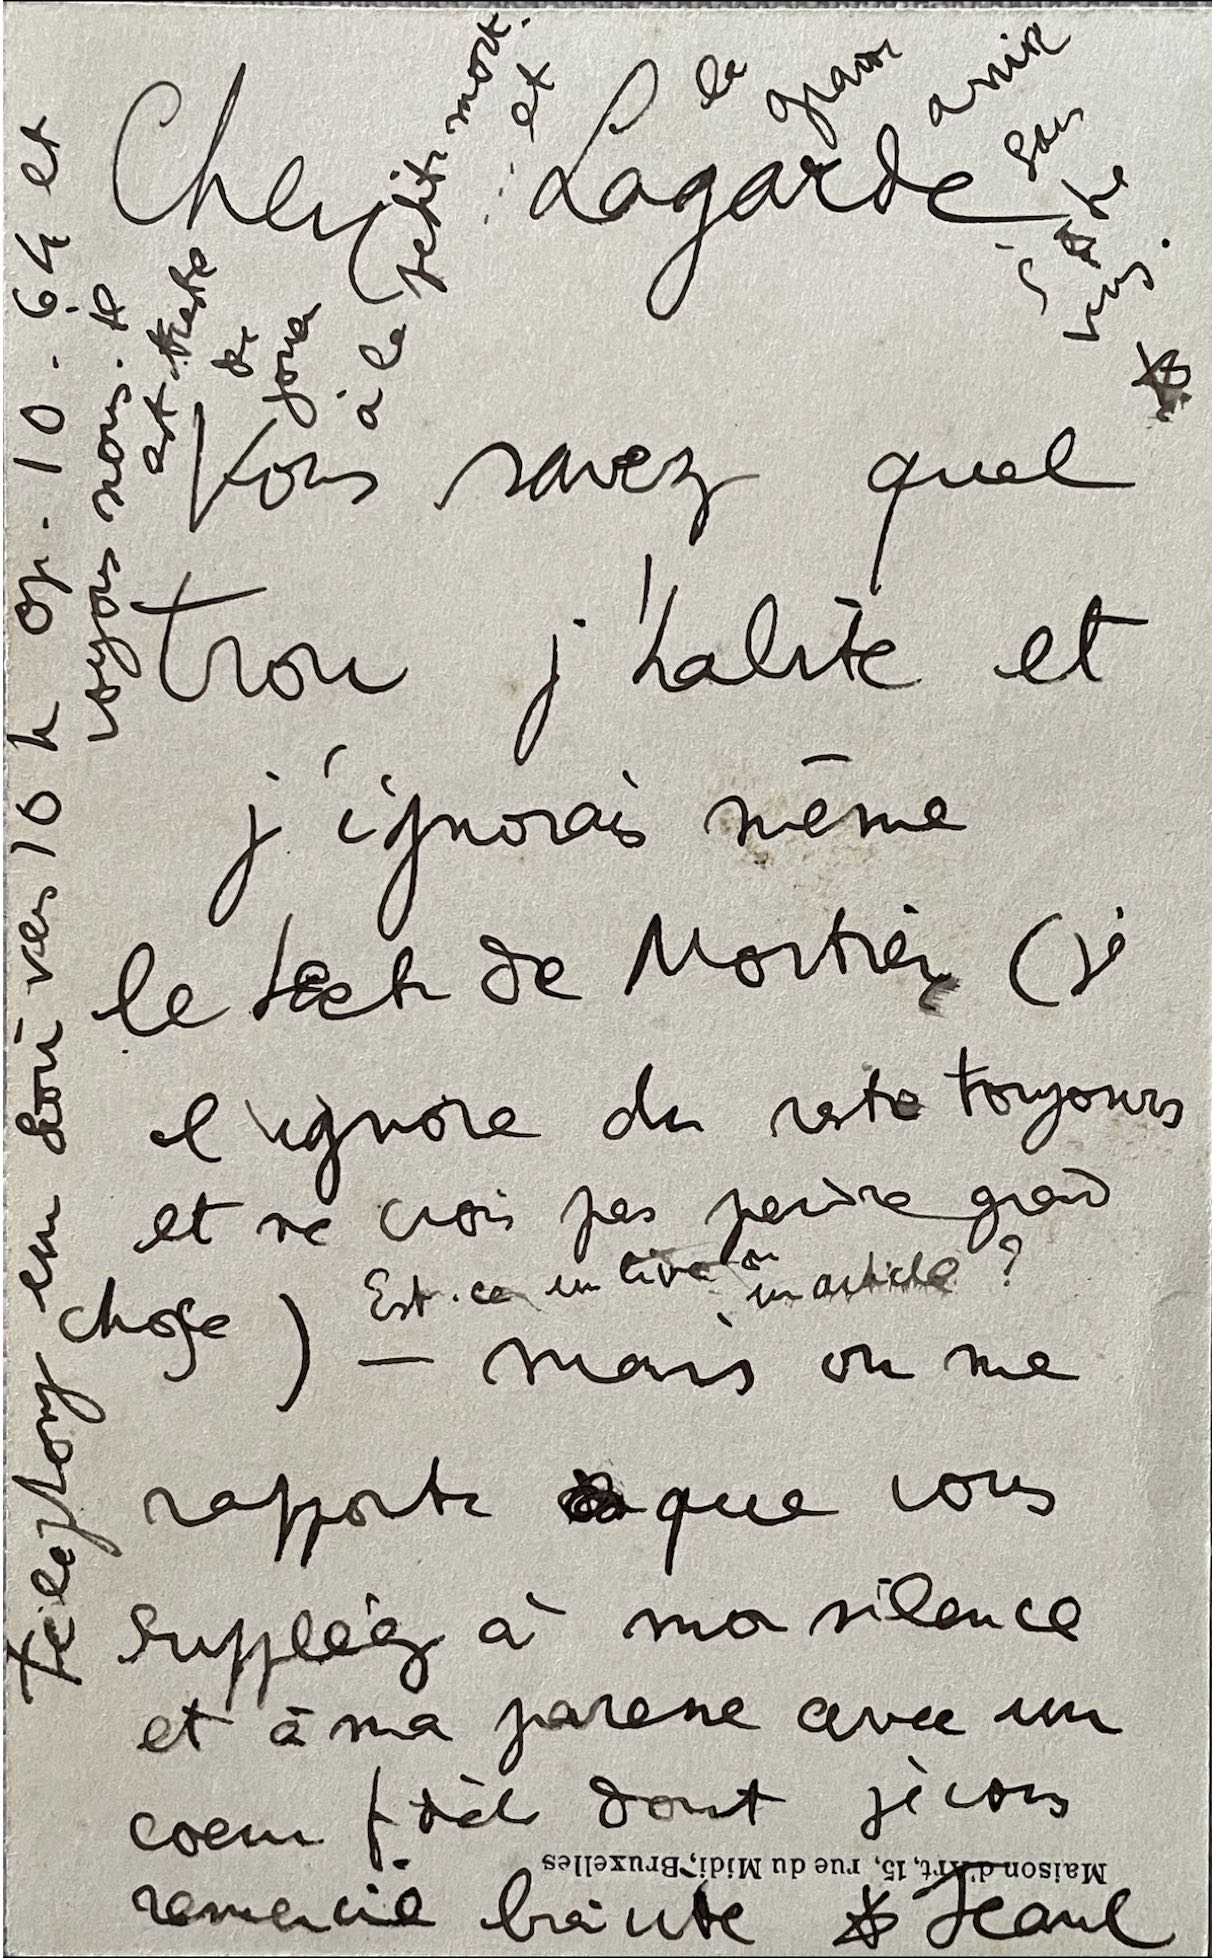 Cher Lagarde
Vous savez quel
trou j'habite et
j'ignorais même
le texte de Mortier (je
l'ignore du reste toujours
et ne crois pas perdre grand
chose) — mais on me
Est-ce un livre ou un article ?
rapporte que vous
suppléez à mon silence
et à ma paresse avec un
coeur fidèle dont je vous
remercie
* Jean
Téléphonez un soir vers 10 h op. 10.64 et
voyons nous. Il
est triste
de
jouer
à la
petite mort
et
la
grave
amitié
sans
vous.
Maison d'Art, 15, rue du Midi, Bruxelles